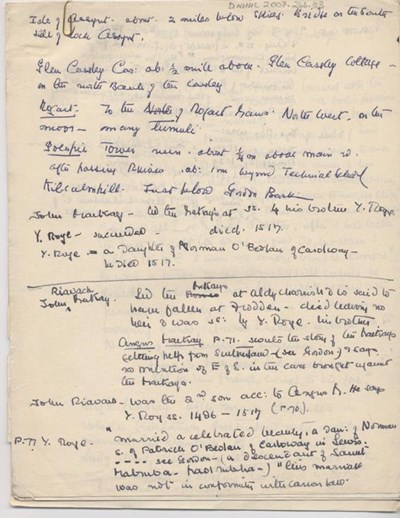 DNHHL 2007.
Isle of Assynt. about 2 miles below Skiag Bridge on the South
side of Loch Assynt.
Glen Cassley Cas: ab: ½ mile above Glen Cassley Cottage -
on the north Bank of the Cassley
Rogart. To the North of Rogart Manse North West, on the
moor - many tumuli
Tower ruin. about ¼ m above main rd.
after passing ab: 1 m beyond Technical School
Kilcalmkill. Just below Gordon Bush
John Mackay - led the Mackays at as. to his brother Y. Roye
Y. Roye - succeeded - died. 1517.
Y. Roye = a Daughter of Norman O'Beolan of Carloway -
he Died 1517.
Riavach
John Mackay. Led the Mackays at Aldycharrish & is said to
have fallen at Flodden - died leaving no
heir & was sc: by Y. Roye his brother
Angus Mackay p. 71. scouts the story of the Mackays
getting help from Sutherland (see Gordon) & says
no mention of E of S. in the case brought against
the Mackays.
John Riavach - was the 2nd son acc: to Angus M. He says
Y Roy sc. 1496 - 1517 (p. 70).
P. 71 Y. Roye. "married a celebrated beauty, a dau: of Norman
s. of Patrick O'Beolan of Carloway in Lewis:
- - - - see Gordon - (a descendant of Saint
) "this marriage
was not in conformity with canon law.